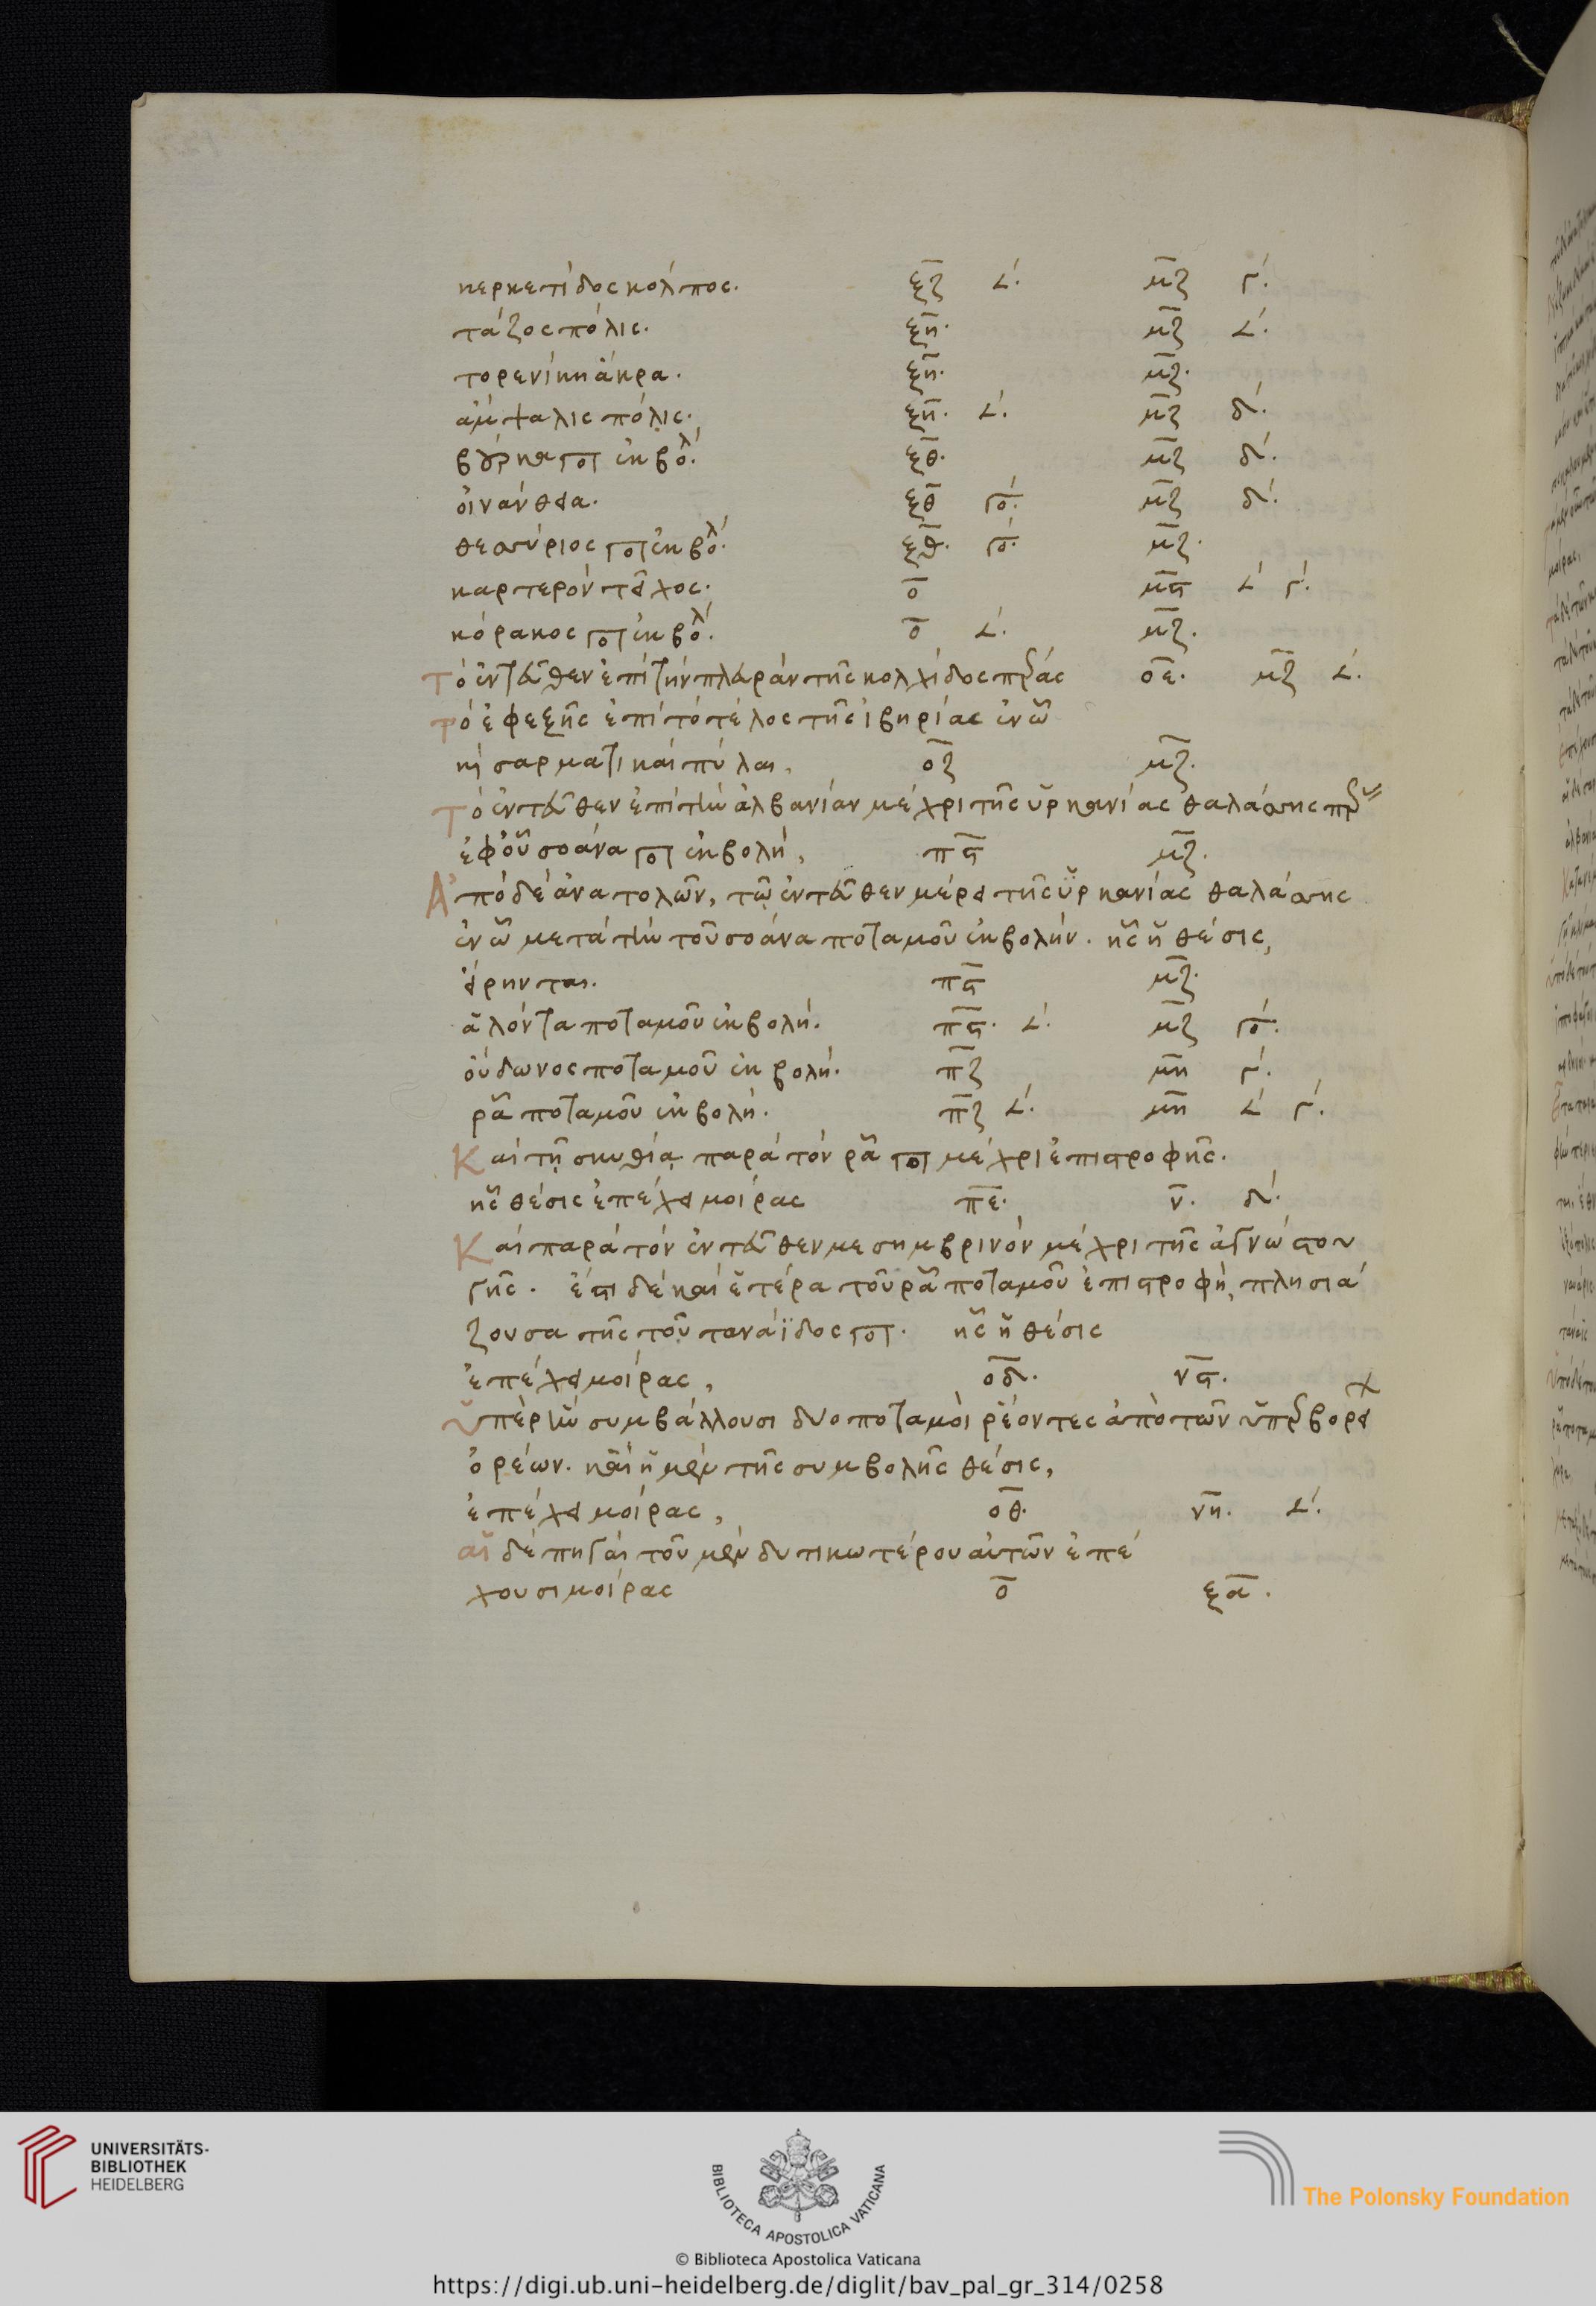 κερκετίδος κολπος. ξζ 𐅵. μζ γ.
τάζος πόλις. ξη. μζ 𐅵.
τορενίκη ἄκρα. ξη. μζ.
ἀμψαλις πόλις. ξη. 𐅵. μζ δ.
βούρκα ποτ ἐκβολ. ξθ. μζ δ.
οἰνάνθεια. ξθ γο. μζ δ.
θεσσύριος ποτ ἐκβολ. ξθ. γο. μζ.
καρτερόν τεῖχος. ο μϛ 𐅵 γ.
κόρακος ποτ ἐκβολ. ο 𐅵. μζ.
τό ἐνταῦθεν ἐπί τήν πλευράν τῆς κολχίδος πρας οε. μζ 𐅵.
τό ἐφεξῆς ἐπί τό τέλος τῆς ἰβηρίας ἐν ᾧ
κι σαρματικαί πύλαι, οζ μζ.
τό ἐνταῦθεν ἐπί τὴν ἀλβανίαν μέχρι τῆς ὑρκανίας θαλάσσης πρ
ἐφ' οὗ σοάνα ποτ ἐκβολή, πϛ μζ.
Ἀπό δέ ἀνατολῶν, τῷ ἐνταῦθεν μέρει τῆς ὑρκανίας θαλάσσης
ἐν ᾧ μετά τὴν τοῦ σοάνα ποταμοῦ ἐκβολήν. ἧς ἡ θέσις,
εἴρηνται. πϛ μζ.
ἀλόντα ποταμοῦ ἐκβολή. πϛ. 𐅵. μζ γο.
οὐδωνος ποταμοῦ ἐκβολή. πζ μη γ.
ῥᾶ ποταμοῦ ἐκβολή. πζ 𐅵. μη 𐅵 γ.
Καί τῇ σκυθίᾳ παρά τόν ῥᾶ ποτ μέχρι ἐπιστροφῆς.
ἧς θέσις ἐπέχει μοίρας πε. ν. δ.
Καί παρά τόν ἐνταῦθεν μεσημβρινόν μέχρι τῆς ἀγνώστου
γῆς. ἔστι δέ καί ἑτέρα τοῦ ῥᾶ ποταμοῦ ἐπιστροφή, πλησιά
ζουσα τῆς τοῦ ταναΐδος ποτ. ἧς ἡ θέσις
ἐπέχει μοίρας, οδ. νϛ.
ὑπὲρ ἣν συμβάλλουσι δυο ποταμοὶ ῥέοντες ἀπὸ τῶν ὑπρβορει
ὀρέων. καὶ ἡ μὲν τῆς συμβολῆς θέσις,
ἐπέχει μοίρας, οθ. νη. 𐅵.
αἱ δέ πηγαί τοῦ μὲν δυτικωτέρου αὐτῶν ἐπέ
χουσι μοίρας ο ξα.
UNIVERSITÄTS-
BIBLIOTHEK
HEIDELBERG
BIBLIOTECA APOSTOLICA VATICANA
The Polonsky Foundation
© Biblioteca Apostolica Vaticana
https://digi.ub.uni-heidelberg.de/diglit/bav_pal_gr_314/0258